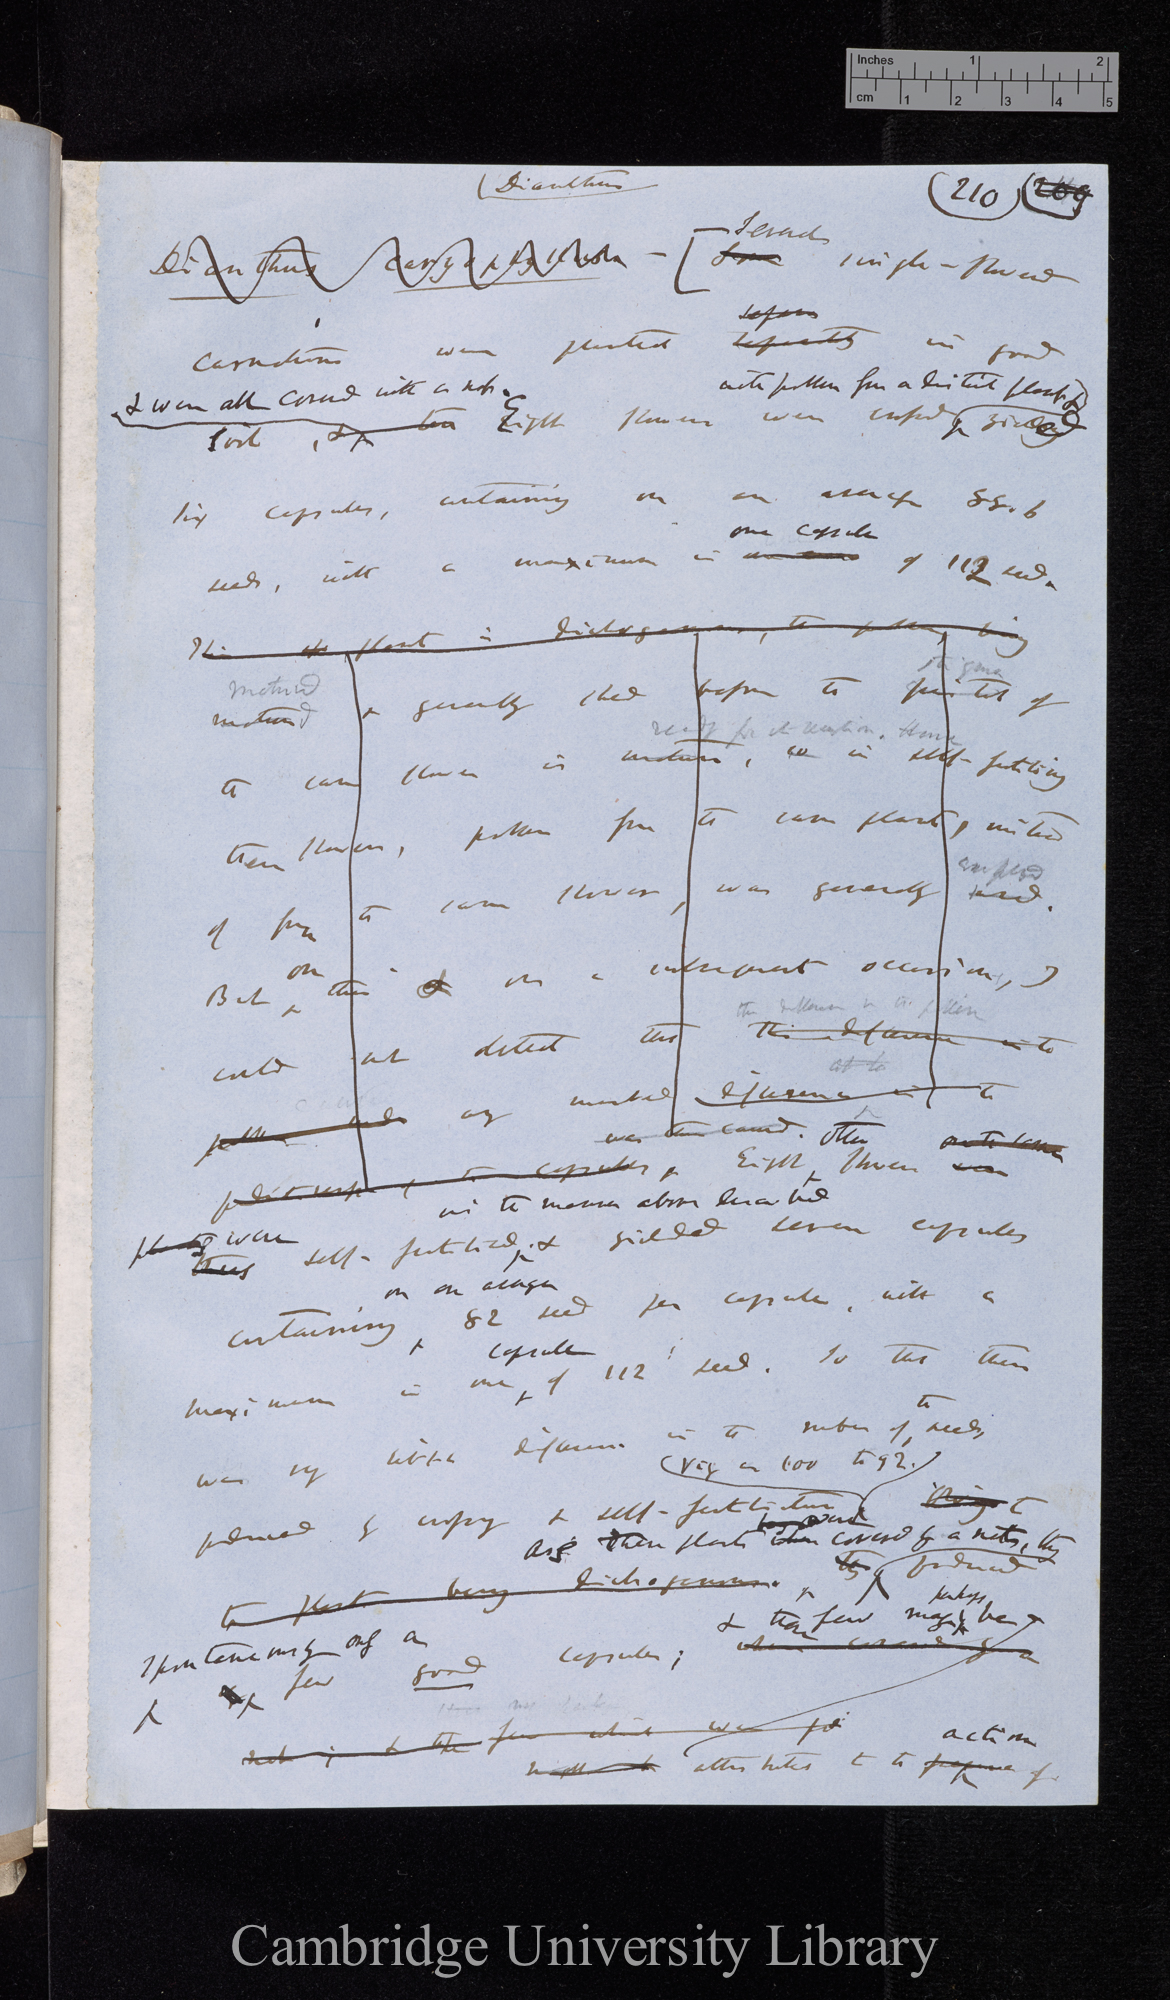 Inches 1 2
cm 1 2 3 4 5
(Dianthus
(210) 209
Dianthus caryophyllus — [Several single-flowered
carnations were planted separately in good
& were all covered with a net. with pollen from a distinct plant &
soil, Eight flowers were crossed yielded
six capsules, containing on an average 88.6
one capsule
seeds, with a maximum in of 112 seeds.
This plant is dichogamous, the pollen, being
matured stigma
matured & generally shed before the pistil of
ready for its reception. Hence
the same flower is mature, so in self-fertilising
these flowers, pollen from the same plant, instead
employed
of from the same flower, was generally used.
on
But this on a subsequent occasion, I
the difference in the pollen
could not detect that this difference in the
as to
pollen made any marked difference in the
was thus caused. other
productiveness of the capsules, Eight flowers were
in the manner above described
plants were
thus self-fertilised, & yielded seven capsules
on an average
containing 82 seed per capsule, with a
capsule
maximum in one of 112 seed. So that there
the
was very little difference in the number of seeds,
(viz as 100 to 92.)
produced by crossing & self-fertilisation
As these plants when covered by a net, they
the plant being dichogamous, they produced
& these few may perhaps be
spontaneously only a
few good capsules; when covered by a
net; & the few which were
action
attributed to the of
Cambridge University Library